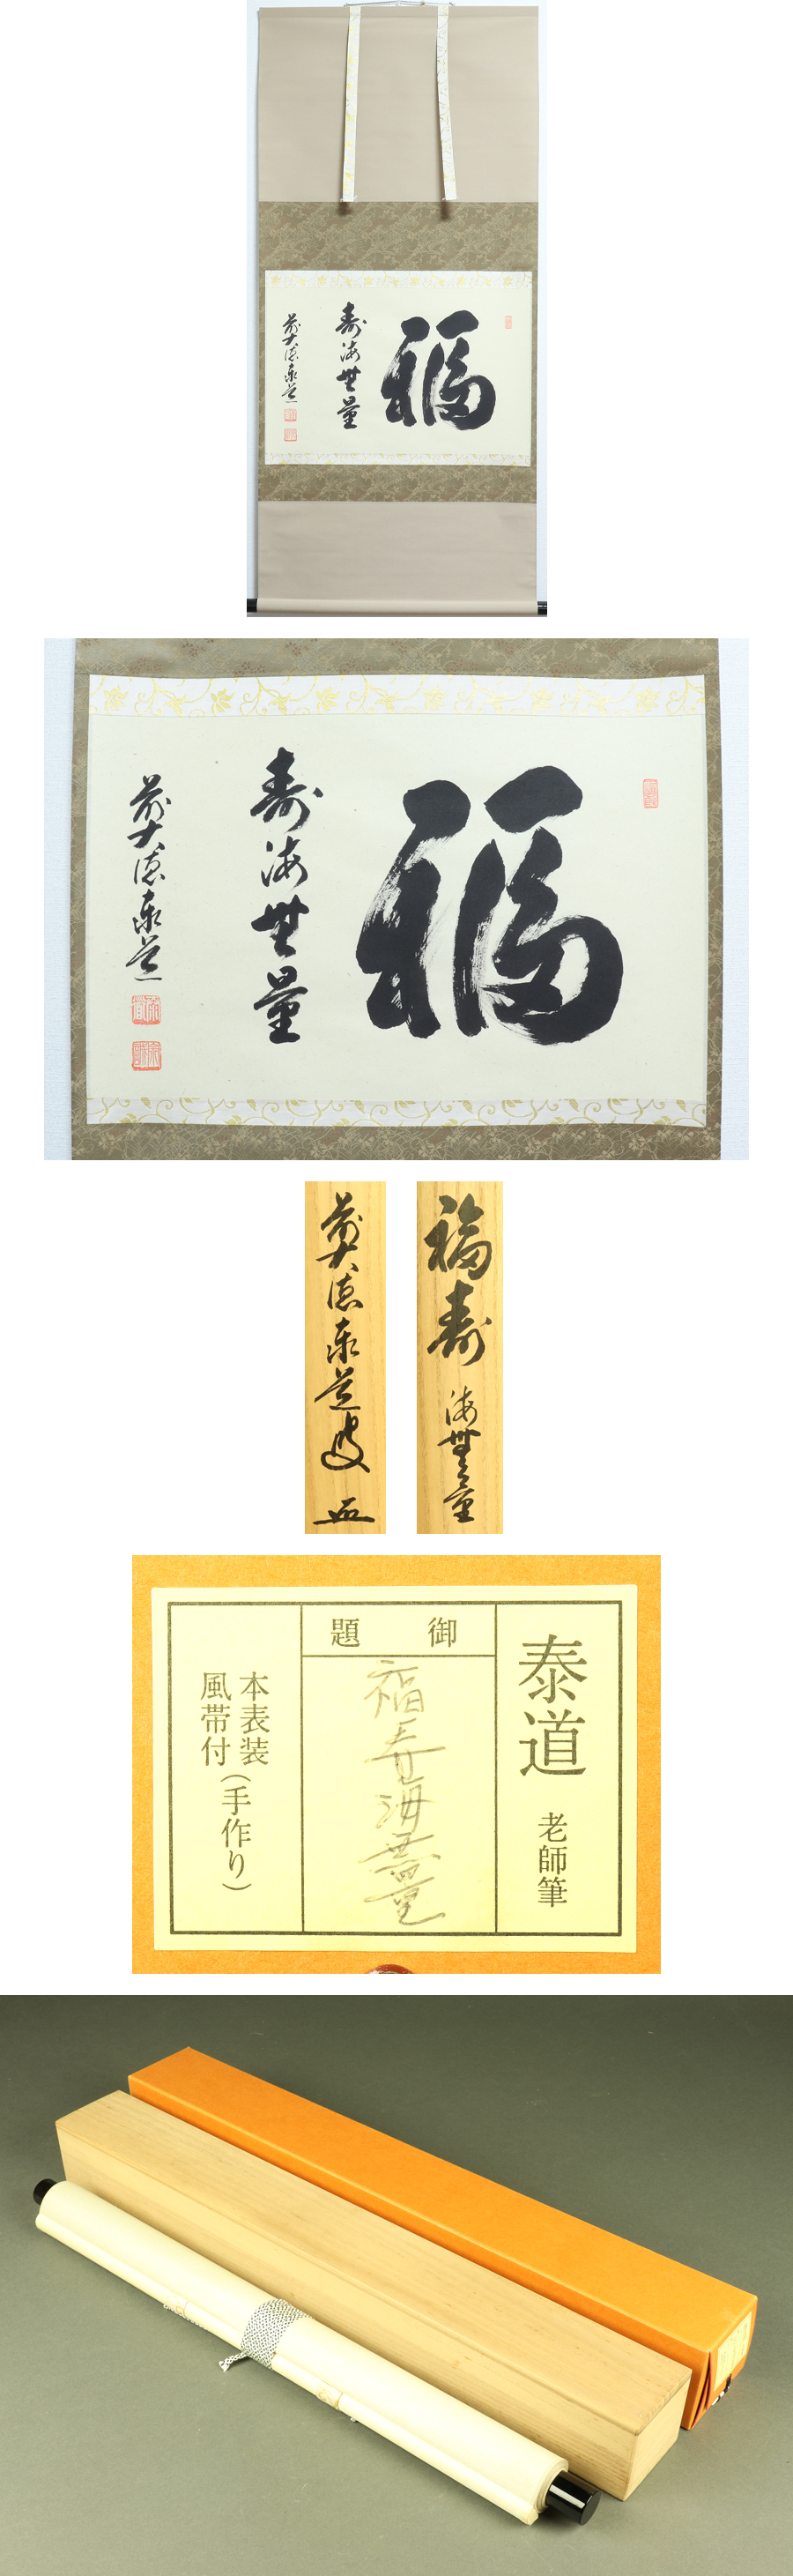 福
寿海無量
前大徳泰道
福
寿海無量
前大徳泰道
福寿海無量
前大徳泰道
泰道 老師筆
御題
福寿海無量
本表装
風帯付
(手作り)